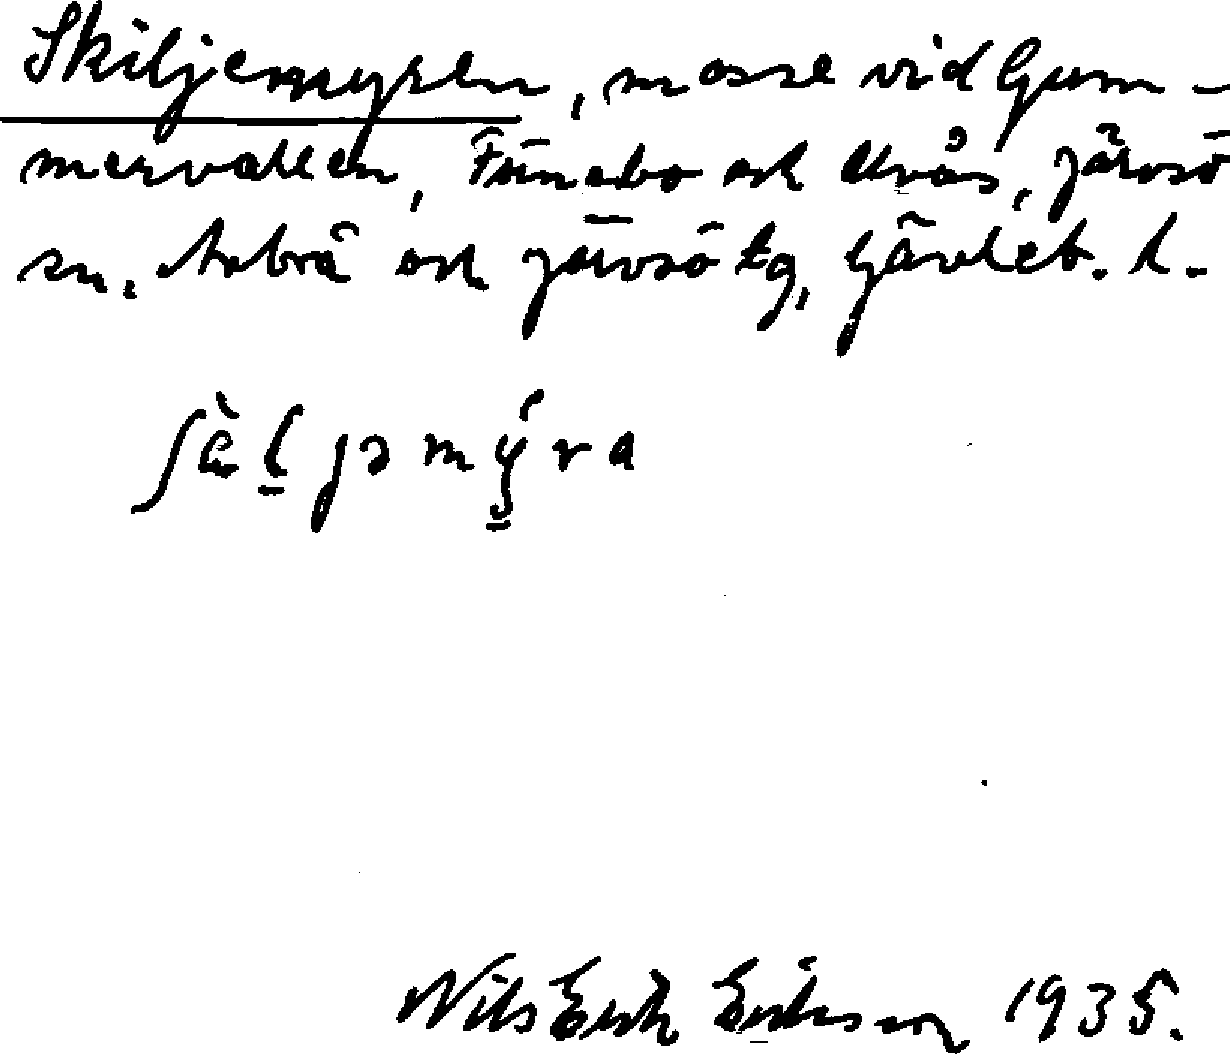 Skiljemyren, mosse vid Gum-
mervallen, Fünebo och Ulvås, Järvsö
sn, Arbrå och Järvsö tg, Gävleb. l.
Nils Erik Eriksson 1935.